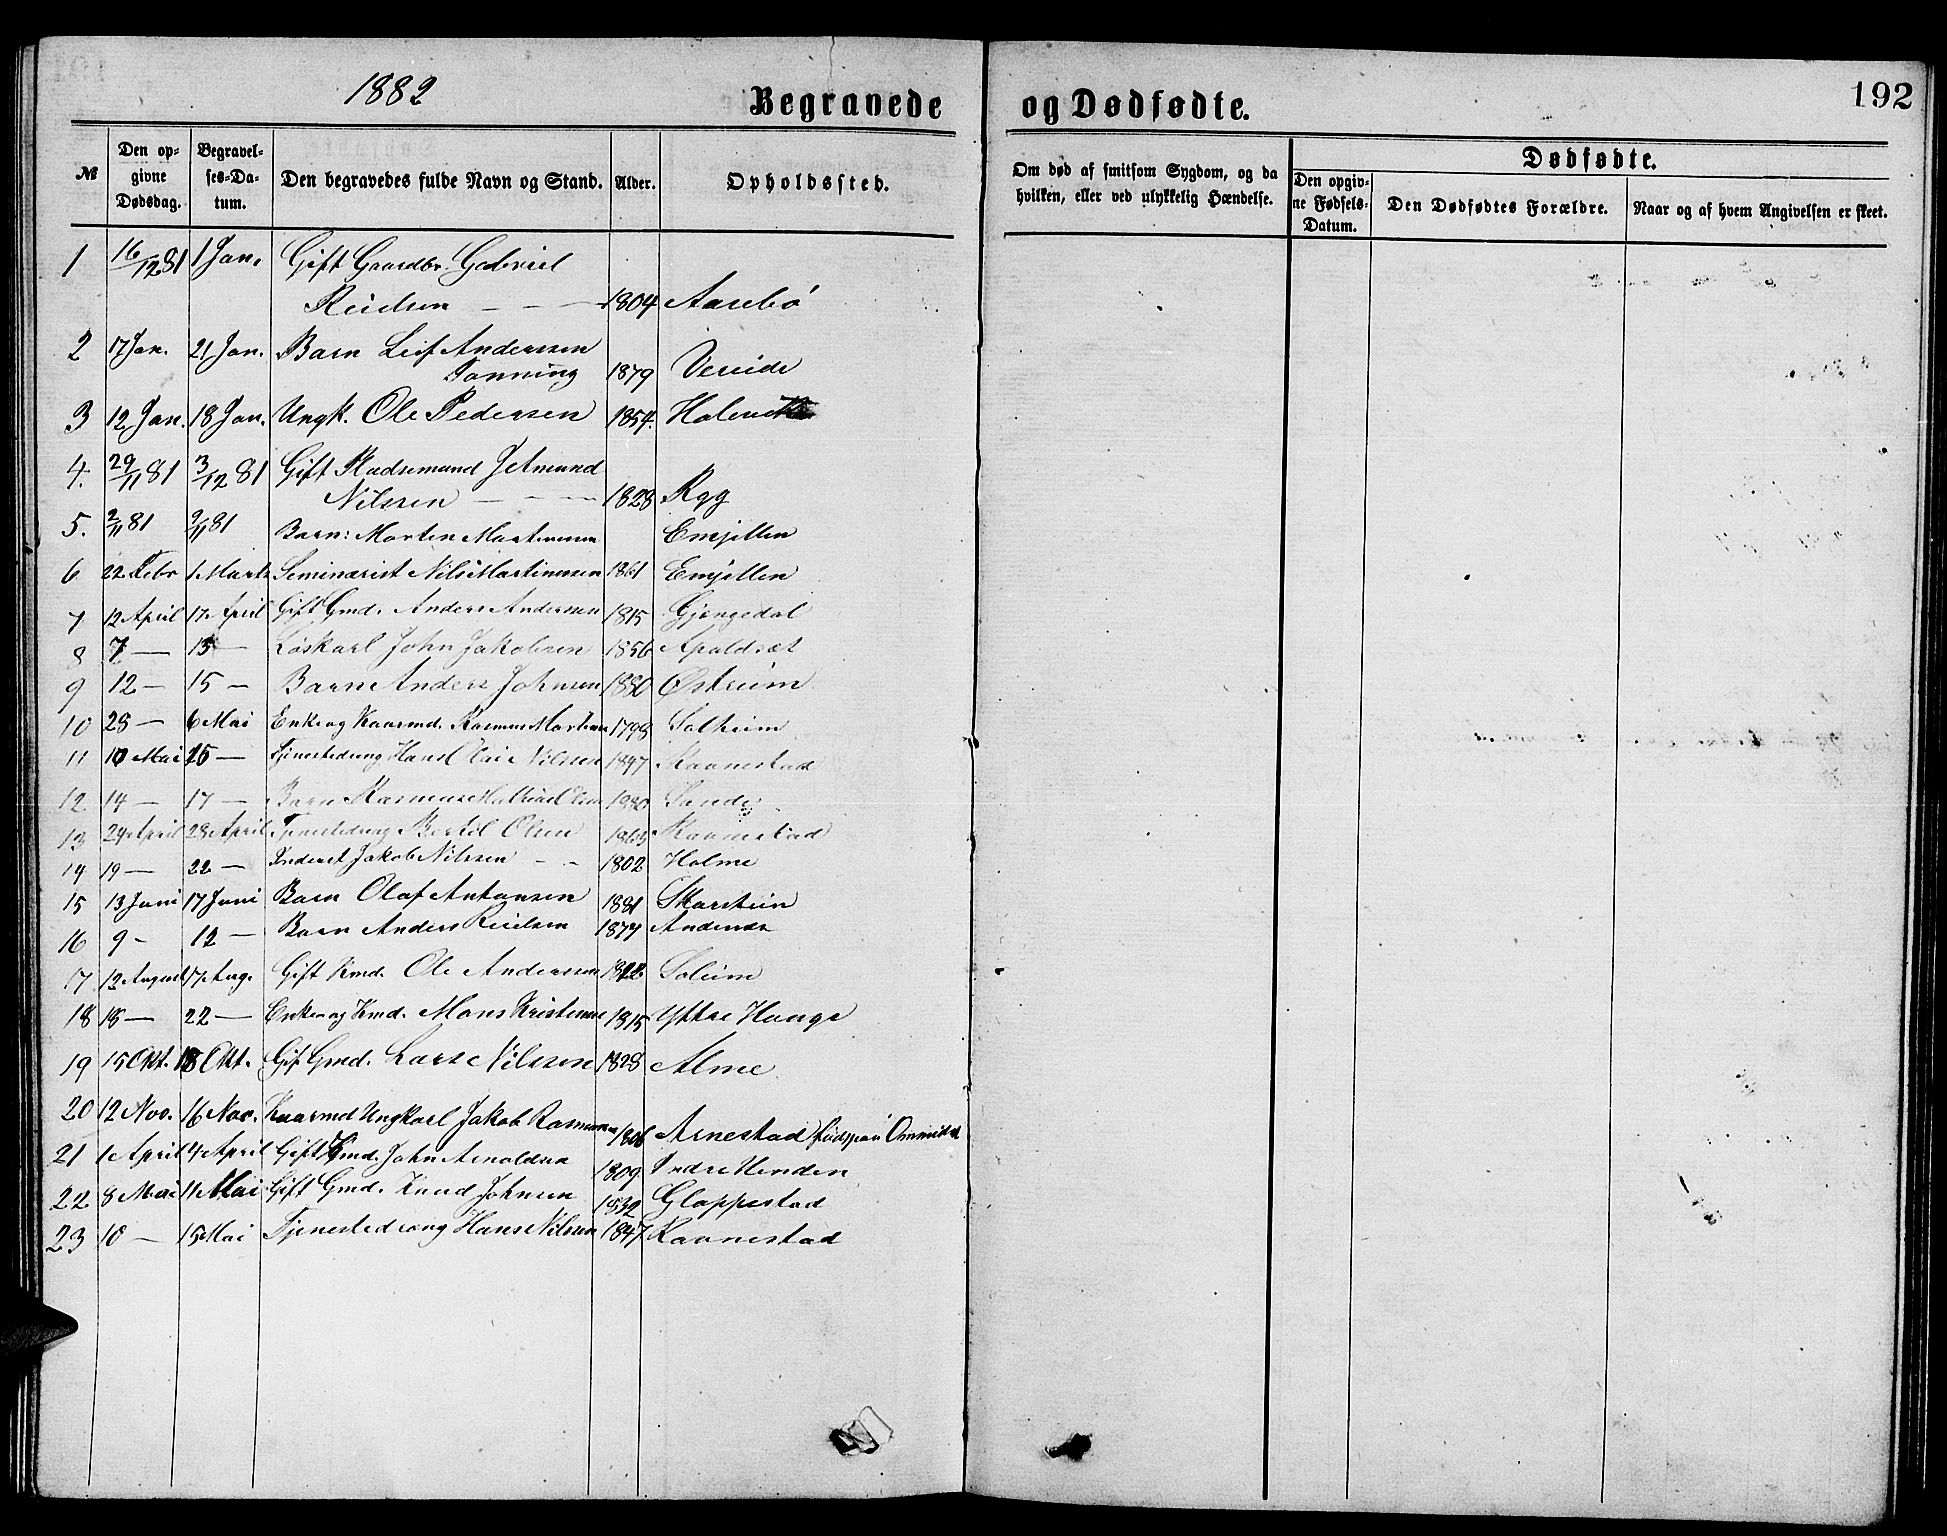 1882 Begravede og Dødfødte. 192
№ Den opgivne Dødsdag. Begravelses-Datum. Den begravedes fulde Navn og Stand. Alder. Opholdssted. Om død af smitsom Sygdom, og da hvilken, eller ved ulykkelig Hændelse. Dødfødte. Den opgivne Fødsels-Datum. Den Dødfødtes Forældre. Naar og af hvem Angivelsen er skeet.
1 16/12 81 1 Jan. Gift Gaardbr. Gabriel
Reidsen — — — 1804 Aasebø
2 17 Jan. 21 Jan. Barn Leif Anderssen
Tonning 1879 Vereide
3 12 Jan. 18 Jan. Ungk. Ole Pedersen 1854. Holevik
4. 29/11 81 3/12 81 Gift Jetmund
Nilssen — — — 1828 Rygg
5. 2/11 81 9/11 81 Barn: Morten Martinussen Emjellen
6 22 Febr 1 Marts Seminarist Nils Martinussen 1861 Emjellen
7 12 April 17 April Gift Gmd. Anders Andersen 1815 Gjengedal
8 7 — 15 — Løskarl John Jakobsen 1856 Apaldsæt
9 12 — 15 — Barn Anders Johnsen 1880 Østreim
10 28 — 6 Mai Enke og Kaarmd. Rasmus 1798 Solheim
11 10 Mai 15 — Tjenestedreng Hans Nilssen 1847 Ravnestad
12 14 — 17 — Barn Rasmus 1880 Sande
13 24 April 28 April Tjenestedreng Bertil Olsen 1863 Ravnestad
14 19 — 22 — Inderst Jakob Nilssen — — 1802 Holme
15 13 Juni 17 Juni Barn Olaf Antonsen 1881 Skarstein
16 9 — 12 — Barn Anders Reidsen 1874 Andenæs
17 12 August 17 Aug. Gift Kmd. Ole Anderssen 1822 Soleim
18 18 — 22 — Enke og Kmd. Mons Kristensen 1815 Yttre Hauge
19 15 Okt. 18 Okt. Gif Gmd. Lars Nilssen 1828 Alme
20 12 Nov. 16 Nov. Kaarmd Ungkarl Jakob Rasmussen 1806 Arnestad født paa Ommedal
21 1 April 4 April Gift Kmd. John Arnoldsen 1809 Indre Henden
22 8 Mai 11 Mai Gift Gmd. Knud Johnsen 1832 Gloppestad
23 10 — 15 Mai Tjenestedreng Hans Nilssen 1847 Ravnestad